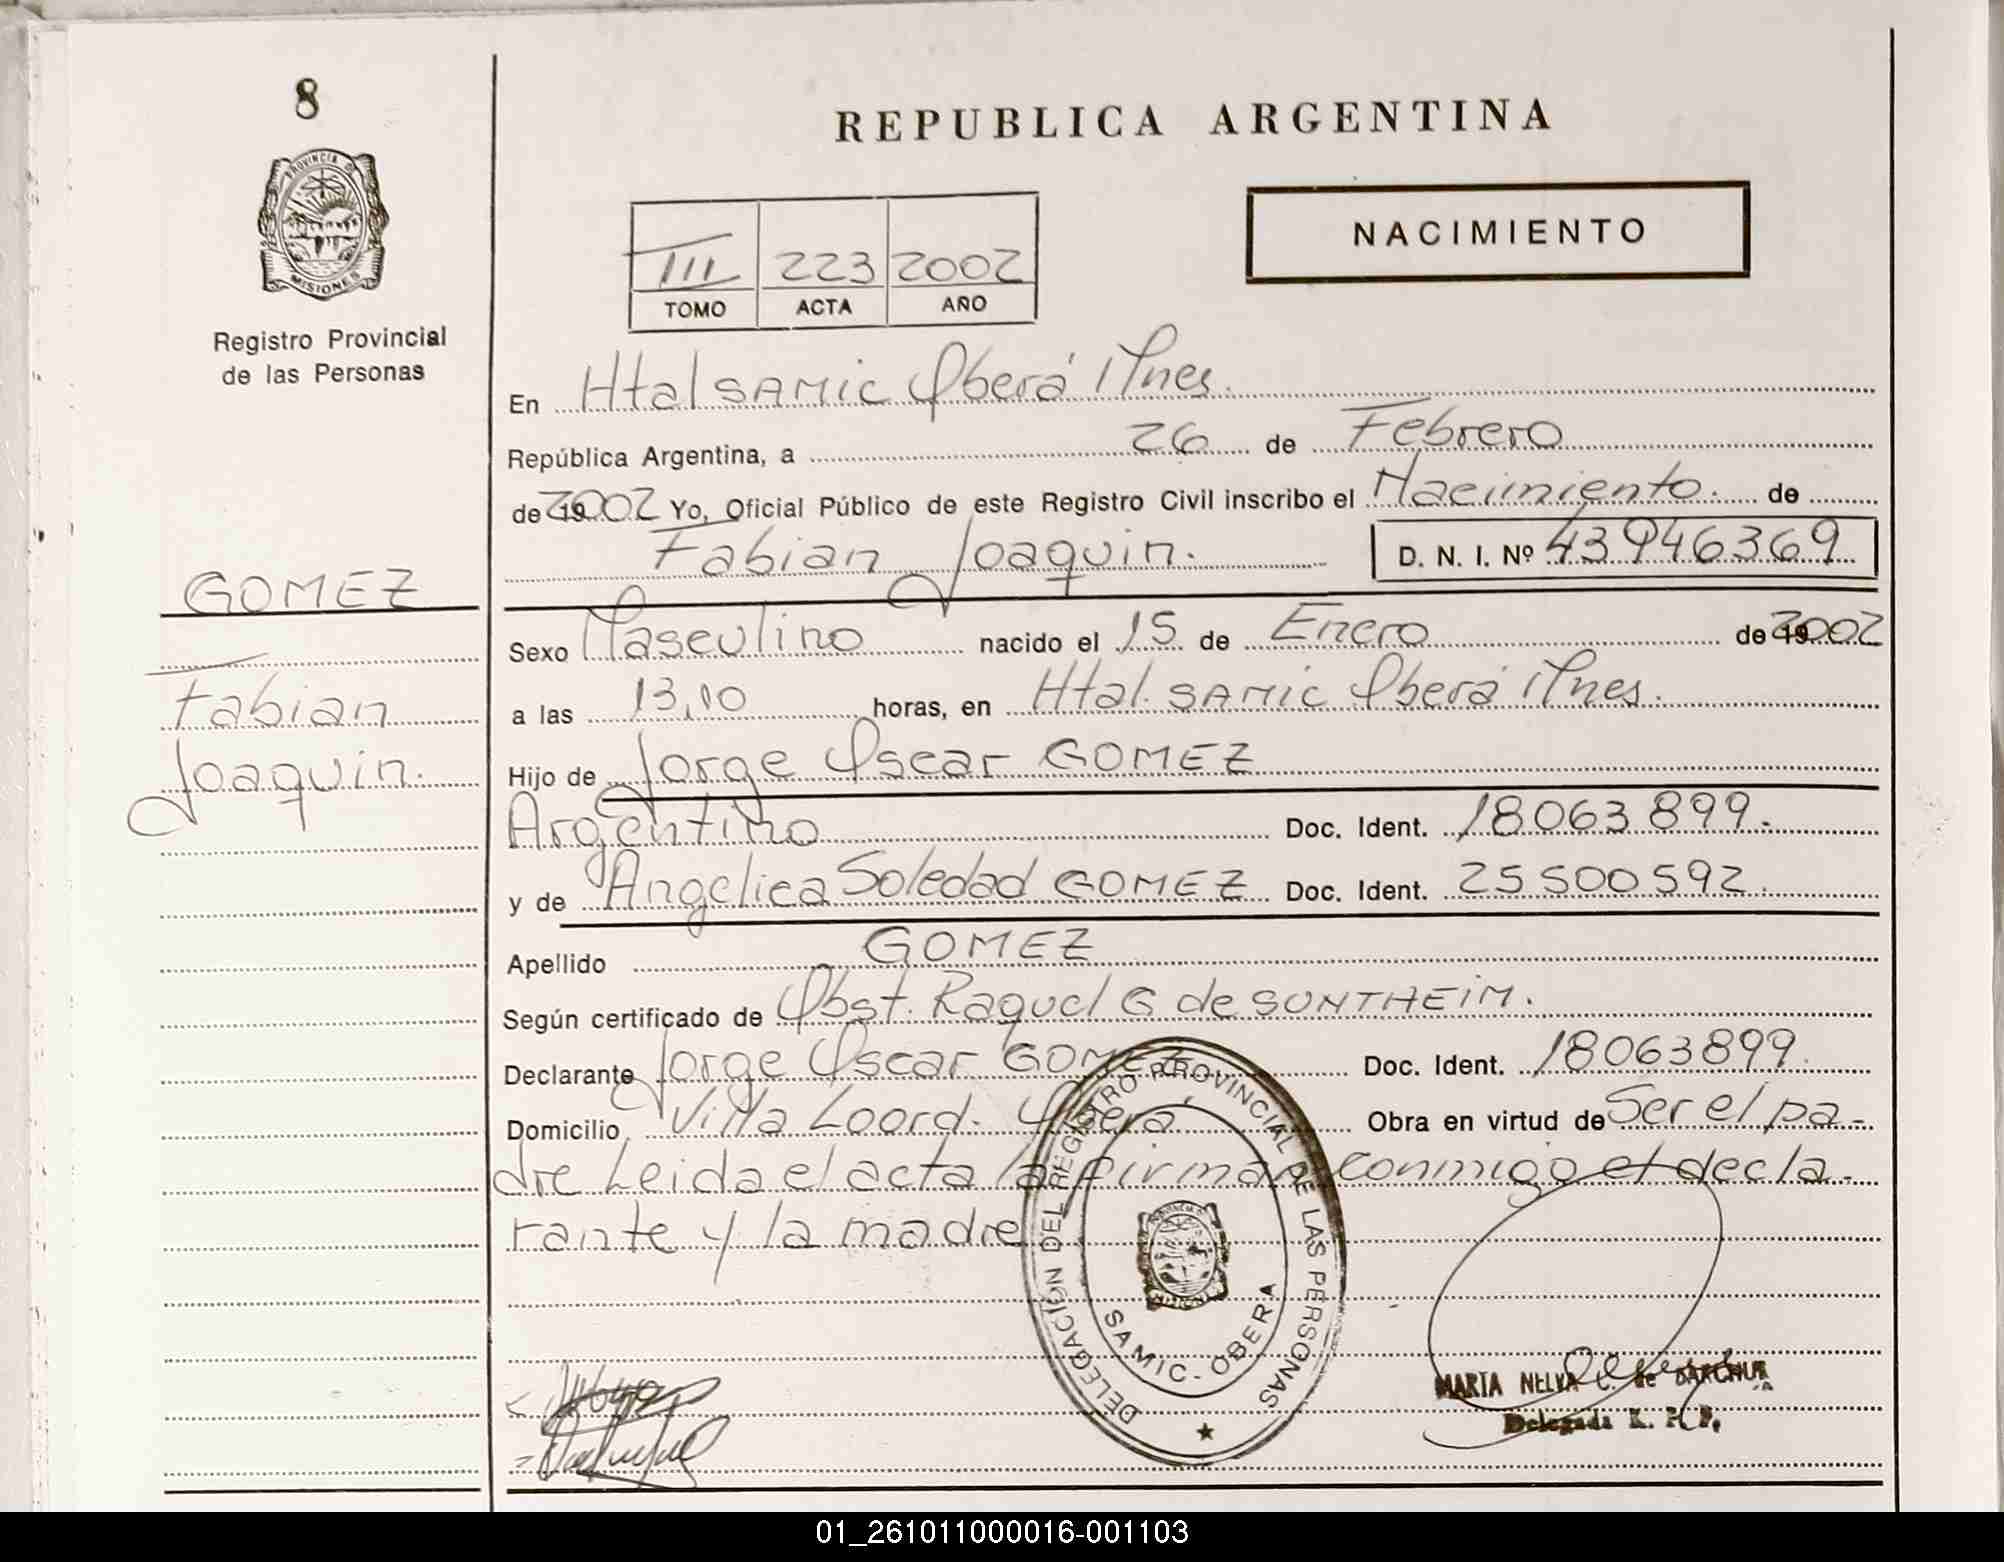 8
PROVINCIA DE
MISIONES
Registro Provincial
de las Personas
GOMEZ
Fabian
Joaquin.
REPUBLICA ARGENTINA
NACIMIENTO
III 223 2002
TOMO ACTA AÑO
En Htal SAMIC Oberá Mnes.
República Argentina, a 26 de Febrero
de 2002 Yo, Oficial Público de este Registro Civil inscribo el Nacimiento. de
Fabian Joaquin. D. N. I. Nº 43946369
Sexo Masculino nacido el 15 de Enero de 2002
a las 13,10 horas, en Htal. SAMIC Oberá Mnes.
Hijo de Jorge Oscar GOMEZ
Argentino Doc. Ident. 18063899.
y de Angelica Soledad GOMEZ Doc. Ident. 25500592.
Apellido GOMEZ
Según certificado de Obst. Raquel G de SONTHEIM.
Declarante Jorge Oscar GOMEZ Doc. Ident. 18063899.
Domicilio Villa Loord. Oberá Obra en virtud de Ser el pa-
dre Leida el acta la firman conmigo el decla-
rante y la madre
DELEGACIÓN DEL REGISTRO PROVINCIAL DE LAS PERSONAS
SAMIC - OBERA
MARTA NELVA C. de
Delegada R. P. P.
01_261011000016-001103